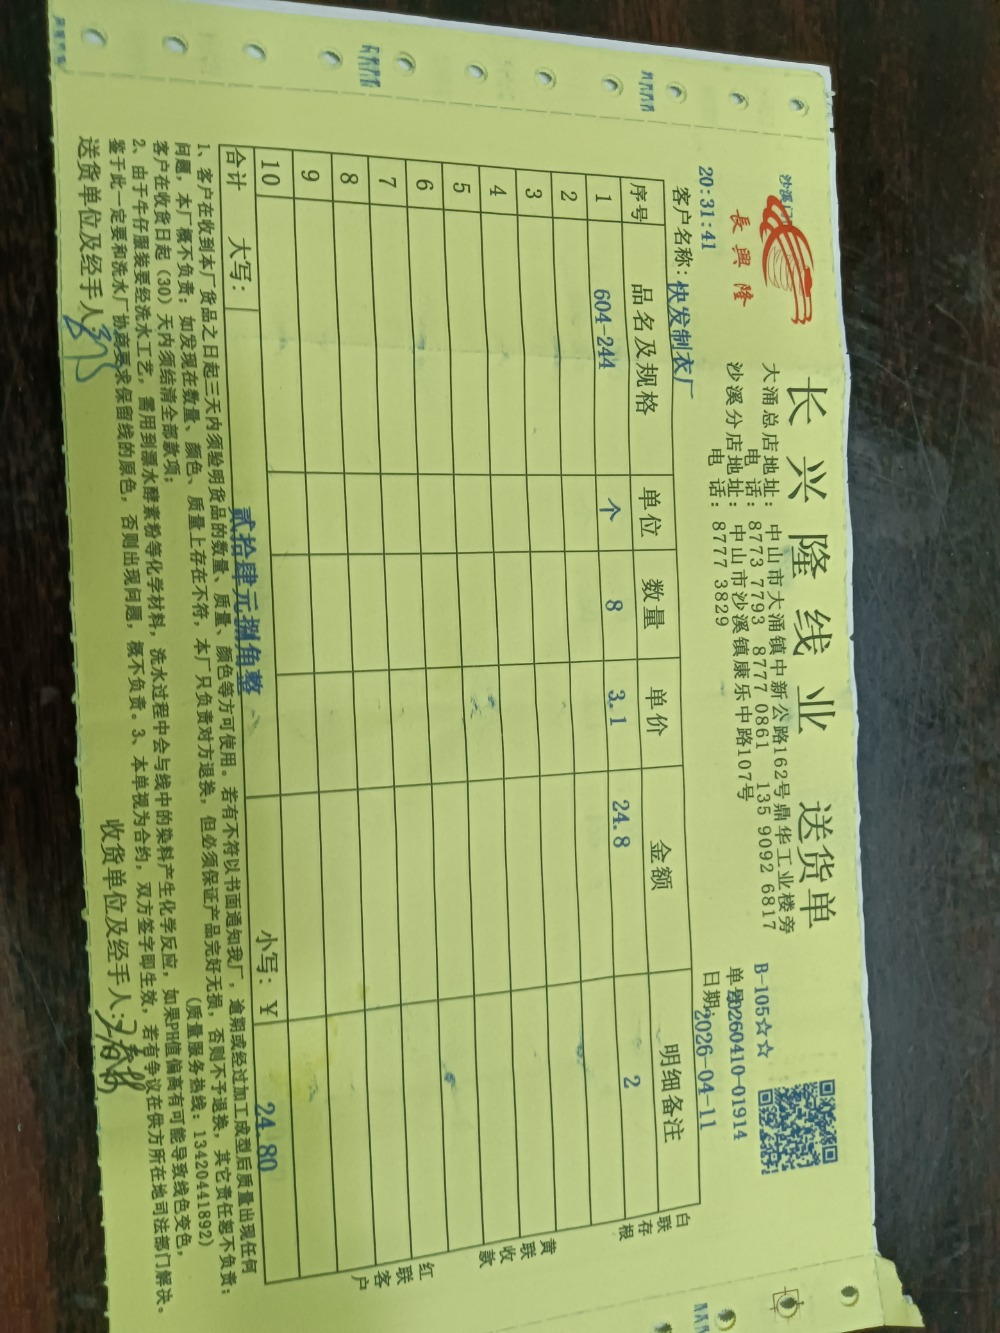 長興隆
长兴隆线业 送货单
大涌总店地址：中山市大涌镇中新公路162号鼎华工业楼旁
电话：8773 7793 8777 0861 135 9092 6817
沙溪分店地址：中山市沙溪镇康乐中路107号
电话：8777 3829
B-105☆☆
单号 20260410-01914
日期：2026-04-11
20:31:41
客户名称：快发制衣厂
序号 品名及规格 单位 数量 单价 金额 明细备注
1 604-244 个 8 3.1 24.8 2
2
3
4
5
6
7
8
9
10
合计 大写： 贰拾肆元捌角整 小写：¥ 24.80
白联存根
黄联收款
红联客户
1、客户在收到本厂货品之日起三天内须验明货品的数量、质量、颜色等方可使用。若有不符以书面通知我厂，逾期或经过加工成型后质量出现任何
问题，本厂概不负责；如发现在数量、颜色、质量上存在不符，本厂只负责对方退换，但必须保证产品完好无损，否则不予退换，其它责任恕不负责；
客户在收货日起（30）天内须结清全部款项； （质量服务热线：13420441892）
2、由于牛仔服装要经洗水工艺，需用到漂水酵素粉等化学材料，洗水过程中会与线中的染料产生化学反应，如果PH值偏高有可能导致线色变色，
鉴于此一定要和洗水厂协商要求保留线的原色，否则出现问题，概不负责。3、本单视为合约，双方签字即生效，若有争议在供方所在地司法部门解决。
送货单位及经手人： 收货单位及经手人：